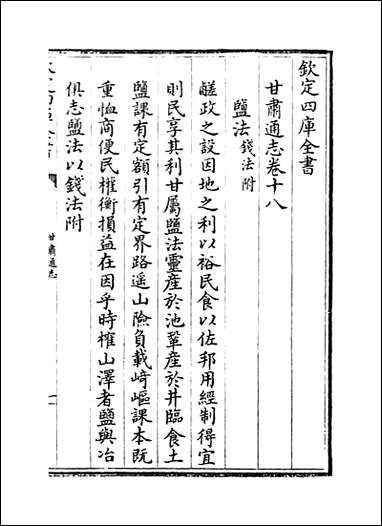 欽定四庫全書
甘肅通志卷十八
鹽法錢法附
鹺政之設因地之利以裕民食以佐邦用經制得宜
則民享其利甘屬鹽法靈産於池鞏産於井臨食土
鹽課有定額引有定界路遥山險負載崎嶇課本既
重恤商便民權衡損益在因乎時榷山澤者鹽與冶
俱志鹽法以錢法附
甘肅通志